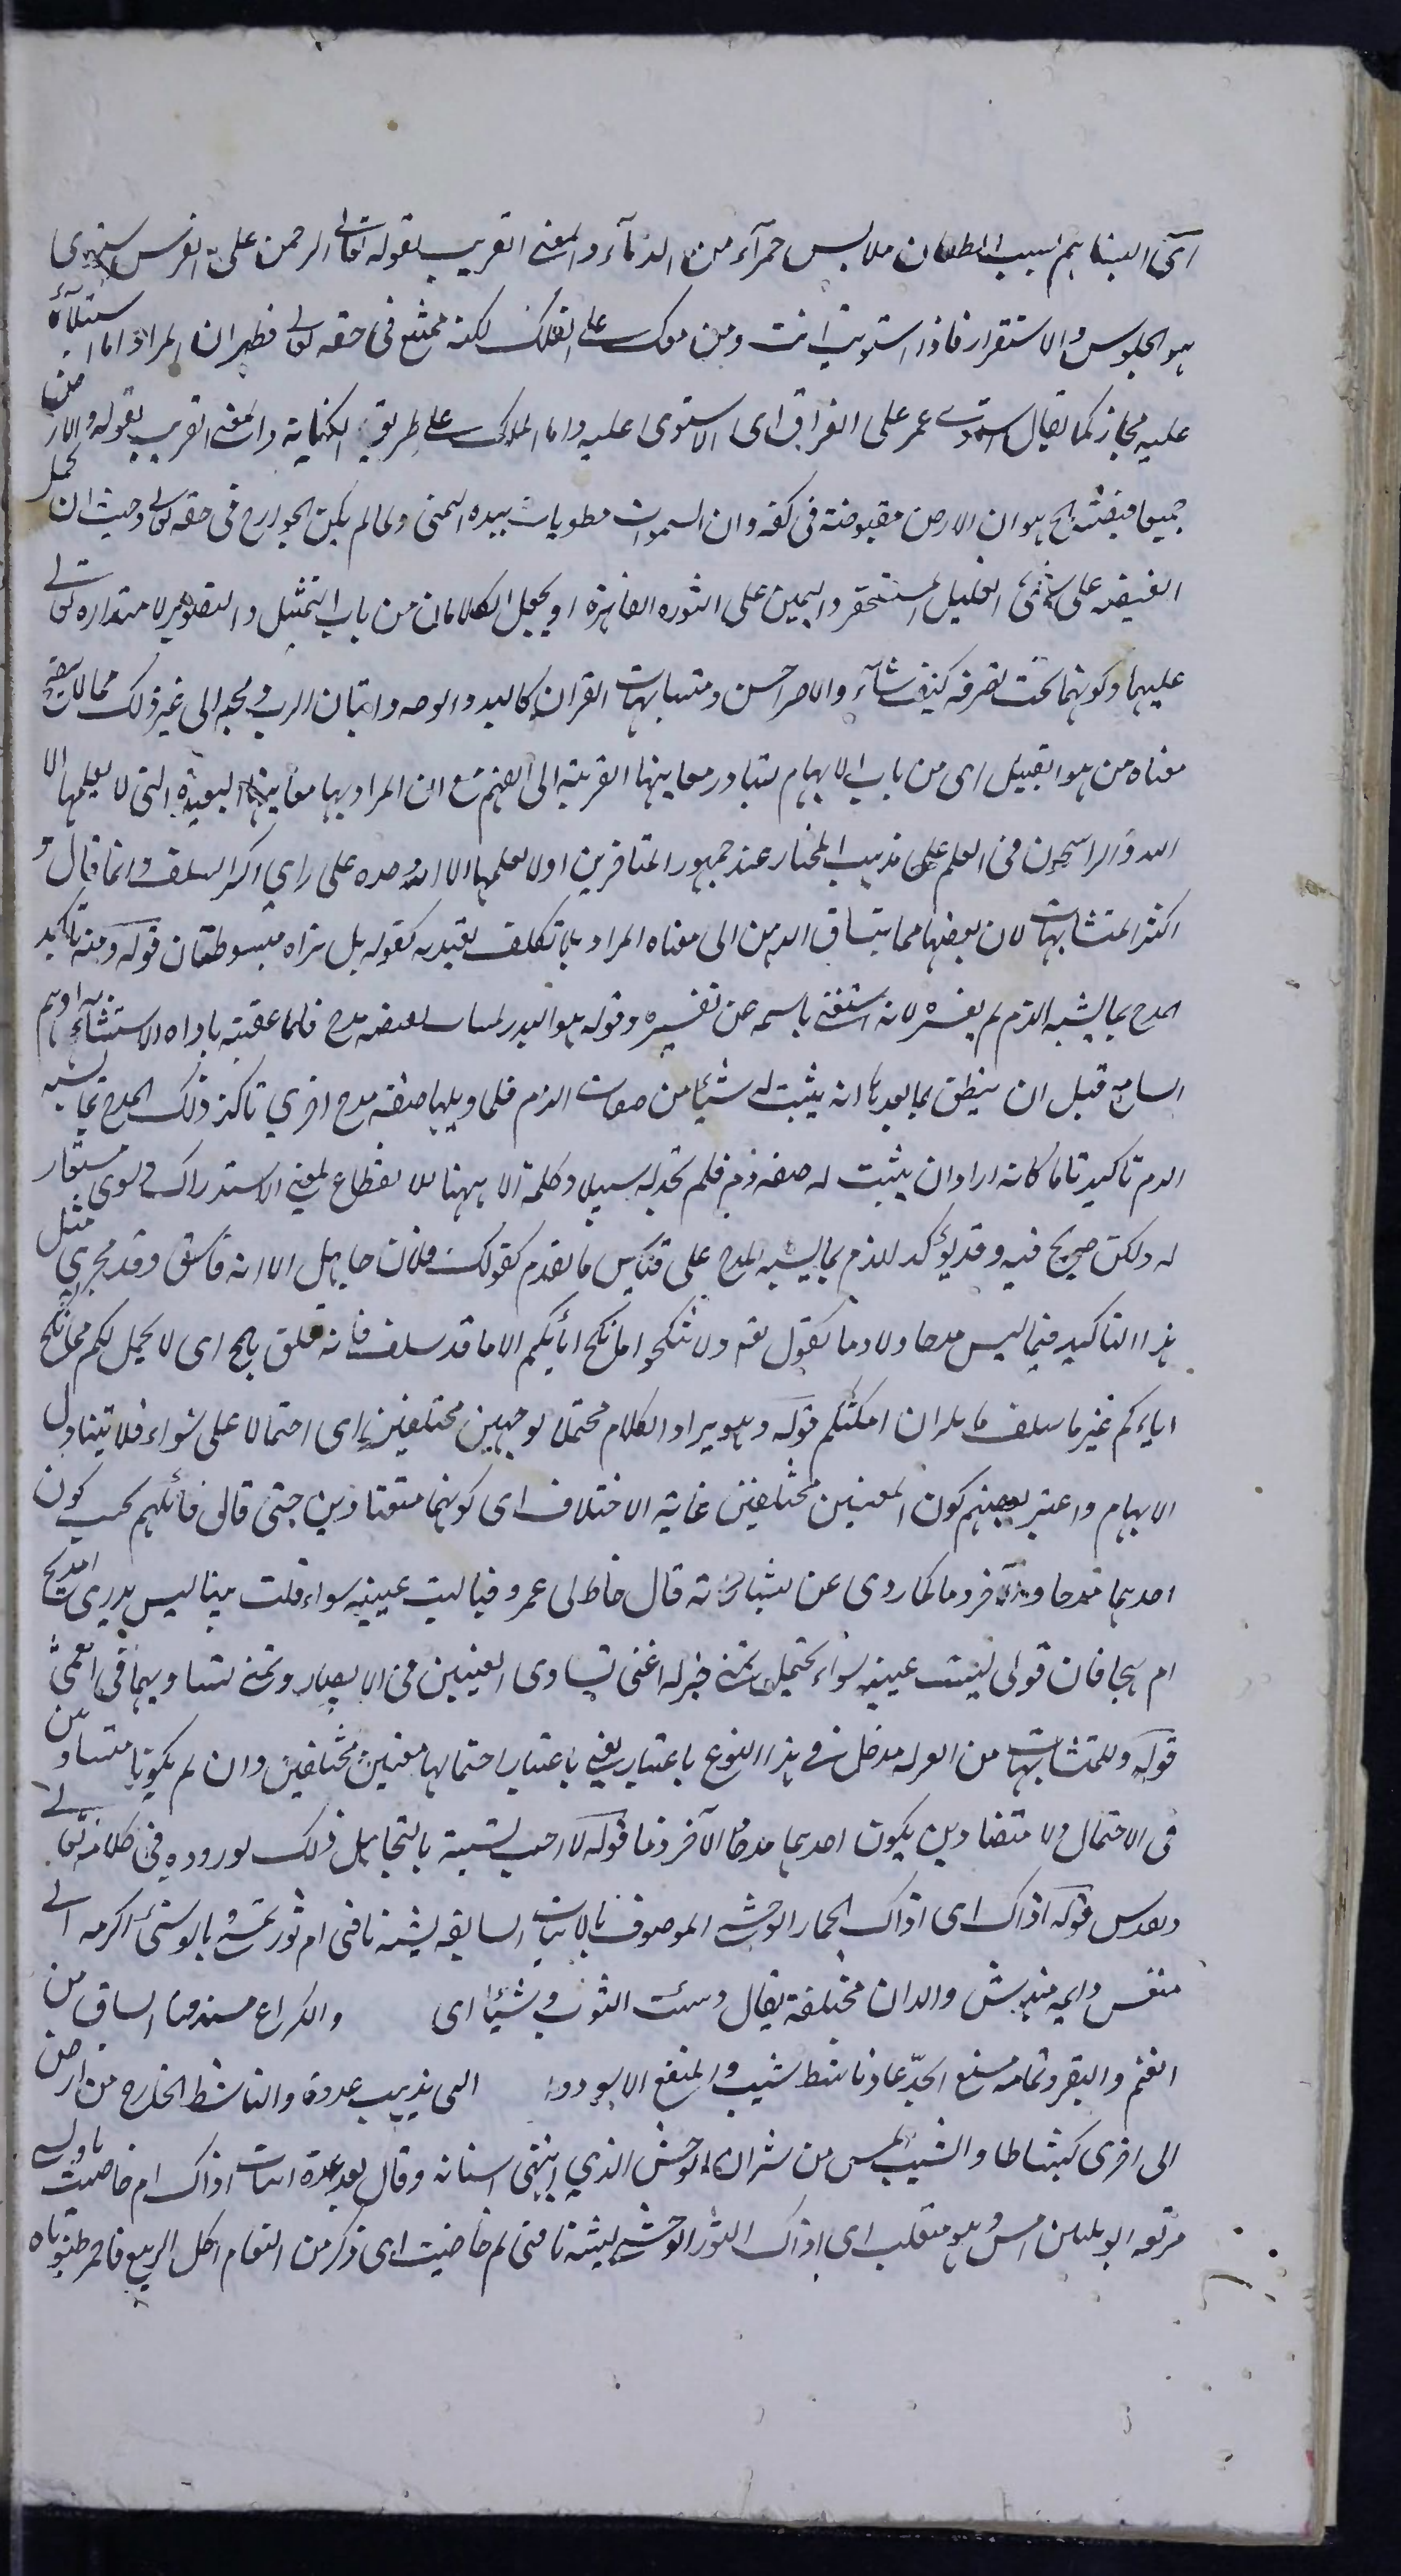 اى البسناهم بسبب الطعان ملابس حمرآء من الدمآء والمعنى القريب لقوله تعالى الرحمن على العرش استوى
هو الجلوس والاستقرار فاذا استويت انت ومن معك على الفلك لكنه ممتنع فى حقه تعالى فظهر ان المراد اما استيلآؤه
عليه مجاز كما يقال استوى عمر على العراق اى استولى عليه واما الملك على طريق الكناية والمعنى القريب بقوله والارض
جميعا قبضته الخ هو ان الارض مقبوضة فى كفه وان السموات مطويات بيده اليمنى ولما لم يكن الجوارح فى حقه تعالى وجب ان يحمل
القبضة على شئ القليل المستحقر واليمين على القدرة القاهرة او يجعل الكلامان من باب التمثيل والتصوير لاقتداره تعالى
عليهما وكونهما تحت تصرفه كيف شآء والاخر احسن ومتشابهات القران كاليد والوجه واتيان الرب ومجيئه الى غير ذلك مما لا يتضح
معناه من هو القبيل اى من باب الايهام يتبادر معانيها القريبة الى الفهم مع ان المراد بها معانيها البعيدة التى لا يعلمها الا
الله والراسخون فى العلم على مذهب المختار عند جمهور المتاخرين اولا يعلمها الا الله وحده على راى اكثر السلف وانما قال و
اكثر المتشابهات لان بعضها مما ينساق الذهن الى معناه المراد بلا تكلف بقيد به كقوله بل يداه مبسوطتان قوله ومنه تاكيد
المدح بما يشبه الذم لم يفسره لانه استغنى باسمه عن تفسيره وقوله هو البدر مدح فلما عقبته باداة الاستثناء اوهم
السامع قبل ان ينطق بما بعدها انه يثبت له شيئا من صفات الذم فلما وليها صفة مدح اخرى تاكد ذلك المدح بما يشبه
الذم تاكيدا تاما كانه اراد ان يثبت له صفة ذم فلم يجد له سبيلا وكلمة الا ههنا للانقطاع بمعنى الاستدراك
له ولكن صريح فيه وقد يؤكد للذم بما يشبه المدح على قياس ما تقدم كقولك فلان جاهل الا انه فاسق وقد يجرى مثل
هذا التاكيد فيما ليس مدحا ولا ذما كقوله تع ولا تنكحوا ما نكح اباؤكم الا ما قد سلف فانه علق بالمح اى لا يحل لكم ما نكح
اباءكم غير ما سلف ان امكنكم قوله وهو ايراد الكلام محتملا لوجهين مختلفين اى احتمالا على سواء فلا يتناول
الايهام واعتبر بعضهم كون المعنيين مختلفين غاية الاختلاف اى كونهما متضادين حتى قال قائلهم يجب كون
احدهما مدحا والاخر ذما كما روى عن بشار انه قال خاط لى عمرو قبا ليت عينيه سواء قلت بيتا ليس يدرى امديح
ام هجا فان قولى ليت عينيه سواء يحتمل تمنى خير له اعنى تساوى العينين فى الابصار وتمنى تساويهما فى العمى
قوله وللمتشابهات من القران مدخل فى هذا النوع باعتبار يعنى باعتبار احتمالها معنيين مختلفين وان لم يكونا متساويين
فى الاحتمال ولا متضادين يكون احدهما مدحا الاخر ذما قوله لا احب تسميته بالتجاهل ذلك لوروده فى كلامه تعالى
وتقدس قوله اذاك اى اذاك الحمار الوحشى الموصوف بالابيات السابقة يشبه ناقتى ام ثور نمش بالوشى اكرعه
والوان مختلفة يقال وشيت الثوب وشيئا اى والكراع مستدق الساق من
الغنم والبقر وتمامه مسفع الخدّ عاد ناشط شبب والمسفع الاسود الذى يذهب عدوة والناشط الخارج من ارض
الى اخرى نشاطا والشبب المسن من ثيران الوحش الذى انتهى اسنانه وقال بعد عدة ابيات اذاك ام خاضب
مرتعه ابو ثلاثين امسى وهو منقلب اى اذاك الثور الوحشى يشبه ناقتى ام خاضب اى ذكر من النعام اكل الربيع فاحمر طنبوباه